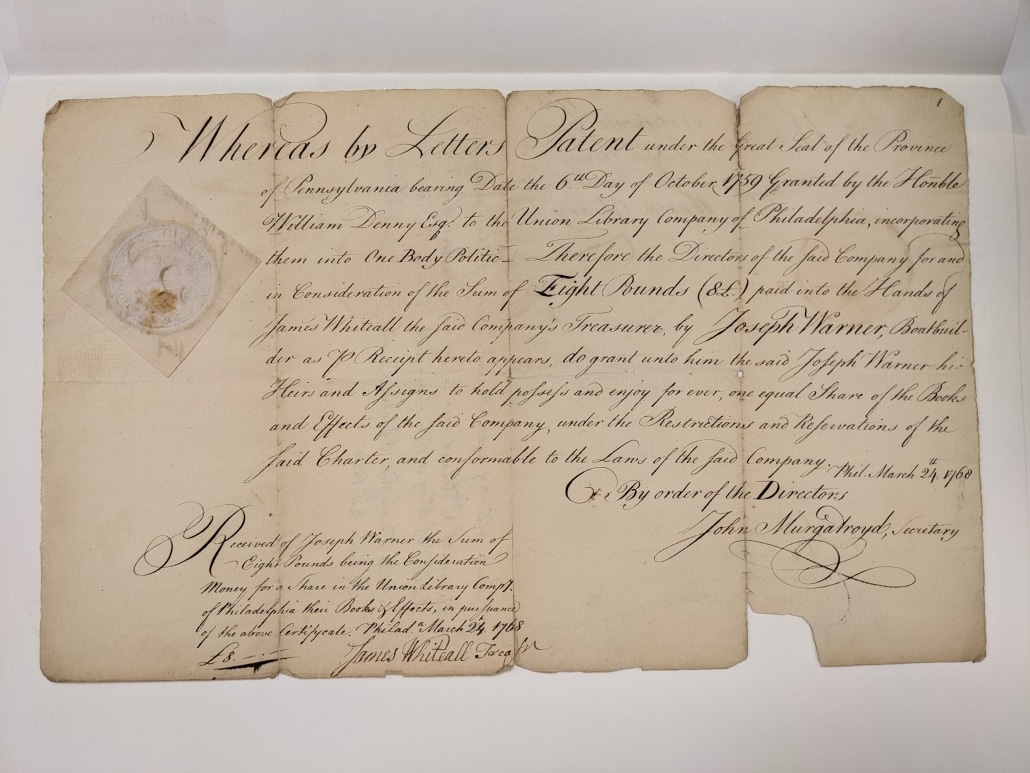 Whereas by Letters Patent under the Great Seal of the Province
of Pennsylvania bearing Date the 6.th Day of October 1759 Granted by the Honble
William Denny Esqr. to the Union Library Company of Philadelphia, incorporating
them into One Body Politic — Therefore the Directors of the said Company for and
in Consideration of the Sum of Eight Pounds (8£) paid into the Hands of
James Whiteall the said Company's Treasurer, by Joseph Warner, Boatbuil-
der as Receipt hereto appears, do grant unto him the said Joseph Warner his
Heirs and Assigns to hold possess and enjoy for ever, one equal Share of the Books
and Effects of the said Company, under the Restrictions and Reservations of the
said Charter, and conformable to the Laws of the said Company. Phil. March 24.th 1768
By order of the Directors
John Murgatroyd, Secretary
Received of Joseph Warner the Sum of
Eight Pounds being the Consideration
Money for a Share in the Union Library Compy.
of Philadelphia their Books & Effects, in pursuance
of the above Certificate. Philad.a March 24. 1768
£8. — —
James Whiteall Treasr